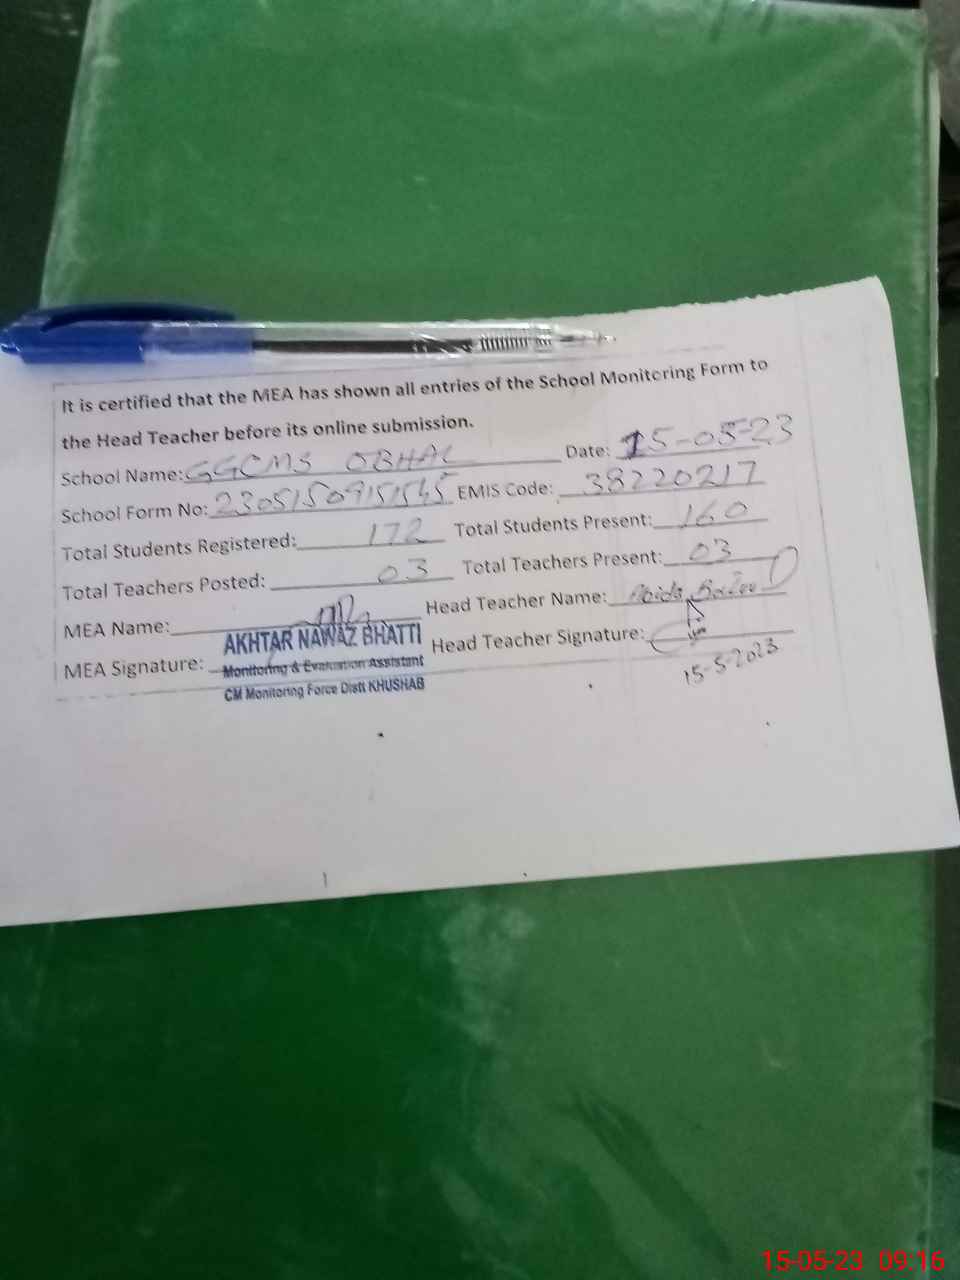 It is certified that the MEA has shown all entries of the School Monitoring Form to
the Head Teacher before its online submission.
School Name: GGCMS OBHAL Date: 15-05-23
School Form No: 23051509151545 EMIS Code: 38220217
Total Students Registered: 172 Total Students Present: 160
Total Teachers Posted: 03 Total Teachers Present: 03
MEA Name: Head Teacher Name: Abida
AKHTAR NAWAZ BHATTI
MEA Signature: Head Teacher Signature:
Monitoring & Evaluation Assistant
CM Monitoring Force Distt KHUSHAB
15-5-2023
15-05-23 09:16